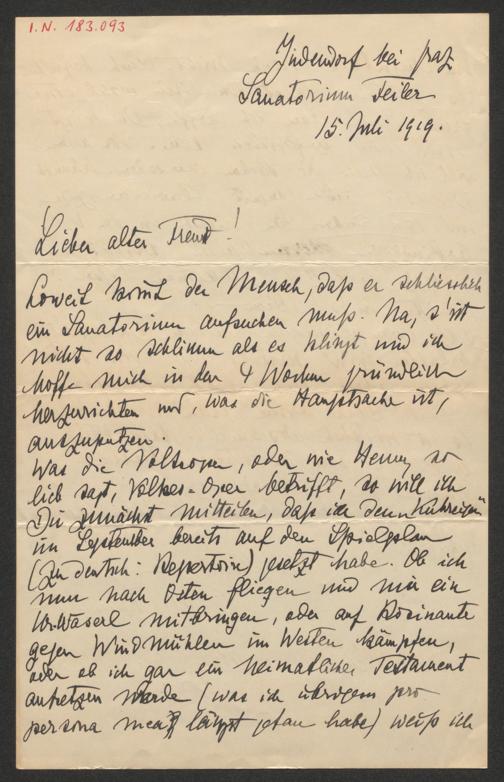 I.N. 183.093
Judendorf bei Graz
Sanatorium Feiler
15. Juli 1919.
Lieber alter Freund!
Soweit kommt der Mensch, daß er schliesslich
ein Sanatorium aufsuchen muß. Na, s'ist
nicht so schlimm als es klingt und ich
hoffe mich in den 4 Wochen gründlich
herzurichten und, was die Hauptsache ist,
auszuputzen.
Was die Volksoper, oder wie Henny so
lieb sagt, Volkes-Oper betrifft, so will ich
Dir zunächst mitteilen, daß ich den „Kuhreigen"
im September bereits auf den Spielplan
(zu deutsch: Repertoir) gesetzt habe. Ob ich
nun nach Osten fliegen und mir ein
Waserl mitbringen, oder auf Rosinante
gegen Windmühlen im Westen kämpfen,
oder ob ich gar ein heimatliches Testament
ansetzen werde (was ich übrigens pro
persona mea längst getan habe) weiß ich